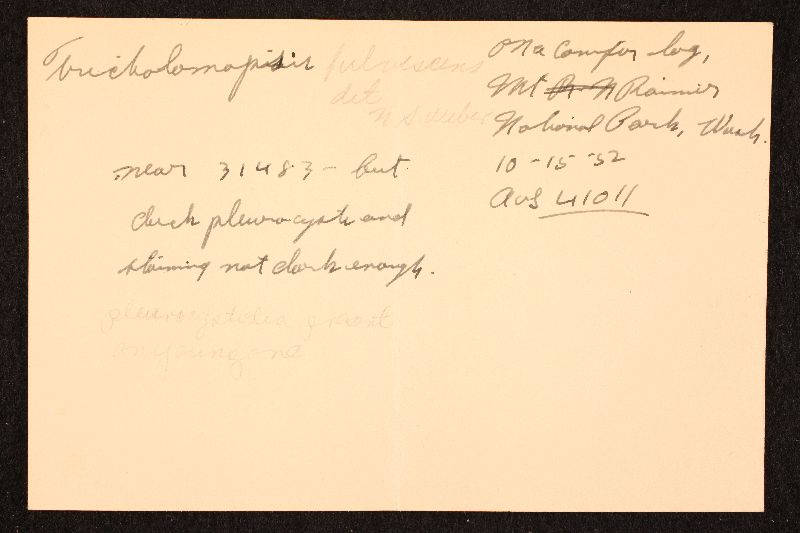 Tricholomopsis fulvescens
det
N S Weber
On a conifer log,
Mt Rainier
National Park, Wash.
10-15-52
AHS 41011
near 31483 - but
check pleurocysts and
staining not dark enough.
pleurocystidia present
on young one